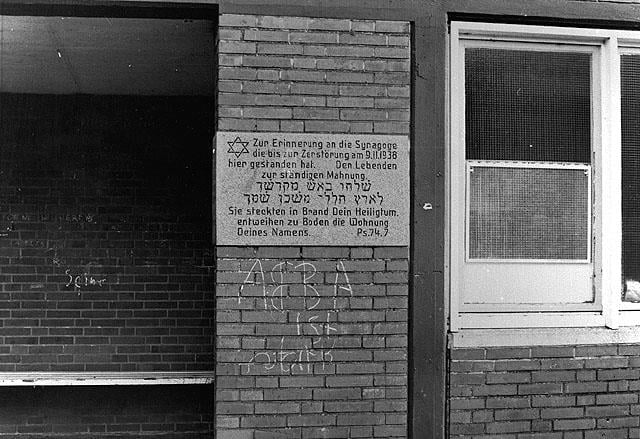 Zur Erinnerung an die Synagoge
die bis zur Zerstörung am 9.11.1938
hier gestanden hat. Den Lebenden
zur ständigen Mahnung.
שלחו באש מקדשך
לארץ חללו משכן שמך
Sie steckten in Brand Dein Heiligtum.
entweihen zu Boden die Wohnung
Deines Namens. Ps.74.7
ABBA
IST